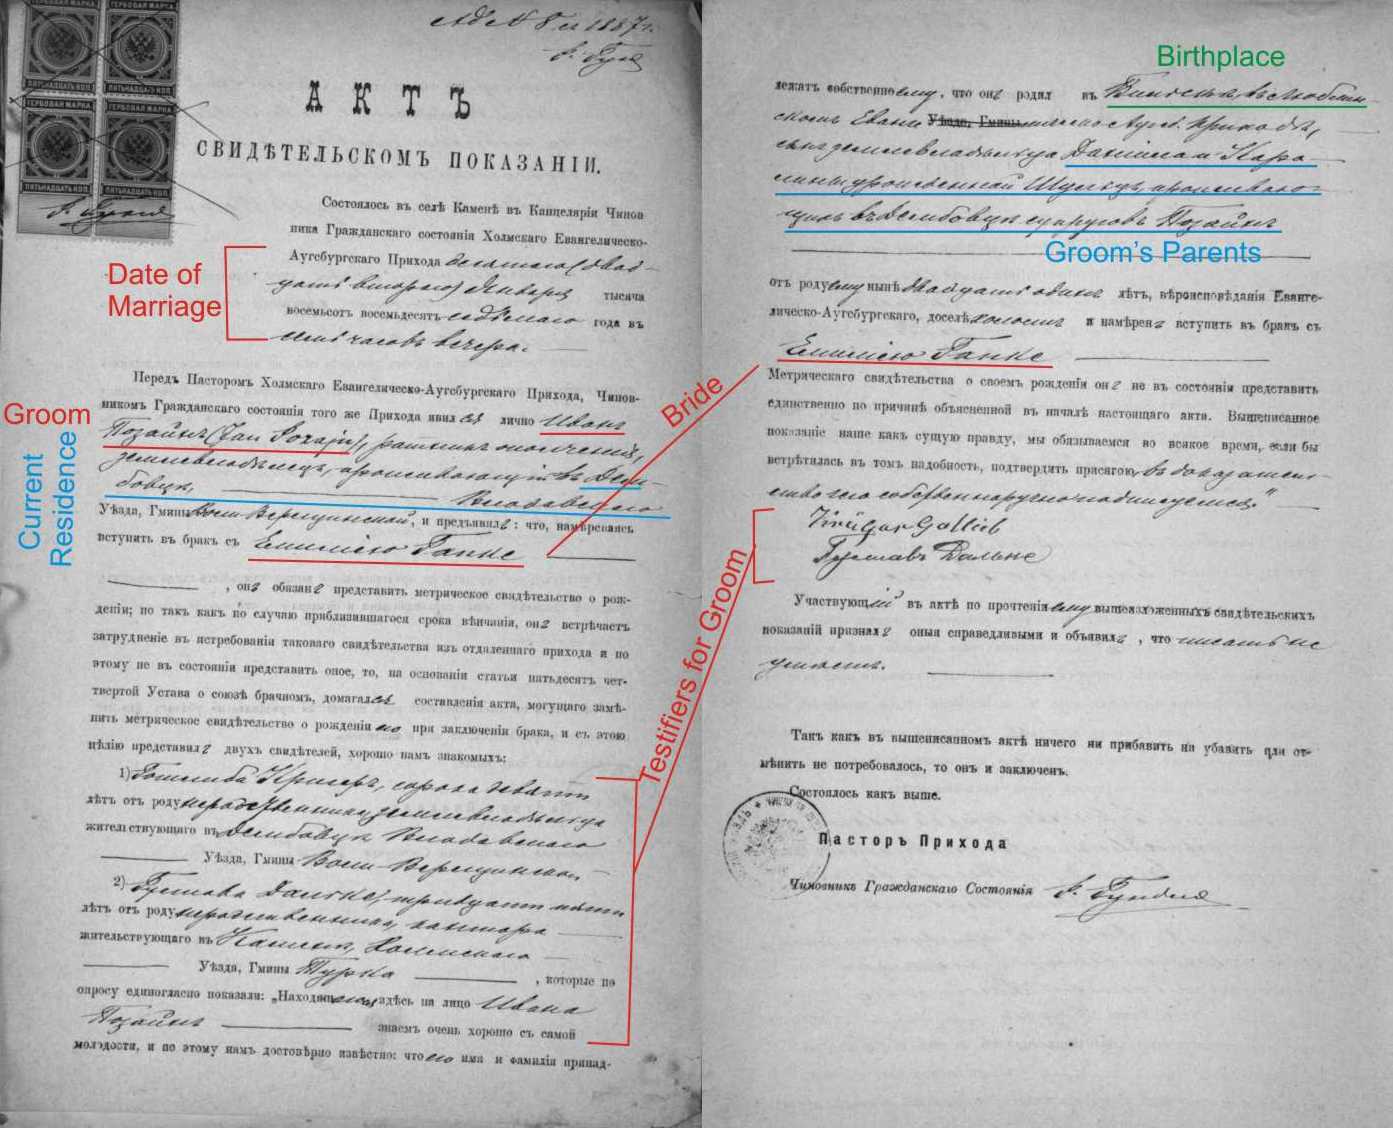 ГЕРБОВАЯ МАРКА
ГЕРБОВАЯ МАРКА
ПЯТЬНАДЦАТЬ КОП.
ПЯТЬНАДЦАТЬ КОП.
ГЕРБОВАЯ МАРКА
ГЕРБОВАЯ МАРКА
ПЯТЬНАДЦАТЬ КОП.
ПЯТЬНАДЦАТЬ КОП.
1887 г.
АКТЪ
СВИДѢТЕЛЬСКОМЪ ПОКАЗАНІИ.
Состоялось въ селѣ Каменѣ въ Канцеляріи Чинов
ника Гражданскаго состоянія Холмскаго Евангелическо-
Аугсбургскаго Прихода десятаго (двад-
Date of
Marriage
цать втораго) Января тысяча
восемьсотъ восемьдесятъ седьмаго года въ
часовъ вечера.
Передъ Пасторомъ Холмскаго Евангелическо-Аугсбургскаго Прихода, Чинов-
никомъ Гражданскаго состоянія того же Прихода явился лично Иванъ
Groom
Позайнъ (Jan Pozajn), ратникъ ополченія,
землевладѣлецъ, проживающій въ Дем-
Current
Residence
бовцѣ, Влодавскаго
Уѣзда, Гмины Воли-Верещинской, и предъявилъ: что, намѣреваясь
вступить въ бракъ съ Емиліею Ганке
Bride
, онъ обязанъ представить метрическое свидѣтельство о рож-
деніи; но такъ какъ по случаю приблизившагося срока вѣнчанія, онъ встрѣчаетъ
затрудненіе въ истребованіи таковаго свидѣтельства изъ отдаленнаго прихода и по
этому не въ состояніи представить оное, то, на основаніи статьи пятьдесятъ чет-
вертой Устава о союзѣ брачномъ, домагался составленія акта, могущаго замѣ-
нить метрическое свидѣтельство о рожденіи его при заключеніи брака, и съ этою
цѣлію представилъ двухъ свидѣтелей, хорошо намъ знакомыхъ:
Testifiers for Groom
1) Готлиба Кригеръ, сорока девяти
лѣтъ отъ роду землевладѣльца
жительствующаго въ Дембовцѣ Влодавскаго
Уѣзда, Гмины Воли-Верещинской
2) Густава Дальке, тридцати пяти
лѣтъ отъ роду кантора
жительствующаго въ Каменѣ, Холмскаго
Уѣзда, Гмины Турка, которые по
опросу единогласно показали: „Находящагося здѣсь на лицо Ивана
Позайнъ знаемъ очень хорошо съ самой
молодости, и по этому намъ достовѣрно извѣстно: что его имя и фамилія принад-
Birthplace
лежатъ собственно ему, что онъ родил въ
Уѣзда, Гмины
сынъ землевладѣльца
супруговъ Позайнъ
Groom’s Parents
отъ роду ему нынѣ двадцать одинъ лѣтъ, вѣроисповѣданія Еванге-
лическо-Аугсбургскаго, доселѣ холостъ и намѣренъ вступить въ бракъ съ
Емиліею Ганке
Метрическаго свидѣтельства о своемъ рожденіи онъ не въ состояніи представить
единственно по причинѣ объясненной въ началѣ настоящаго акта. Вышеписанное
показаніе наше какъ сущую правду, мы обязываемся во всякое время, если бы
встрѣтилась въ томъ надобность, подтвердить присягою, въ доказатель-
ство чего собственноручно подписуемся“
Krüger Gottlieb
Густавъ Дальке
Участвующій въ актѣ по прочтеніи ему вышеизложенныхъ свидѣтельскихъ
показаній призналъ оныя справедливыми и объявилъ, что писать не
умѣетъ.
Такъ какъ въ вышеписанномъ актѣ ничего ни прибавить ни убавить или от-
мѣнить не потребовалось, то онъ и заключенъ.
Состоялось какъ выше.
Пасторъ Прихода
Чиновникъ Гражданскаго Состоянія